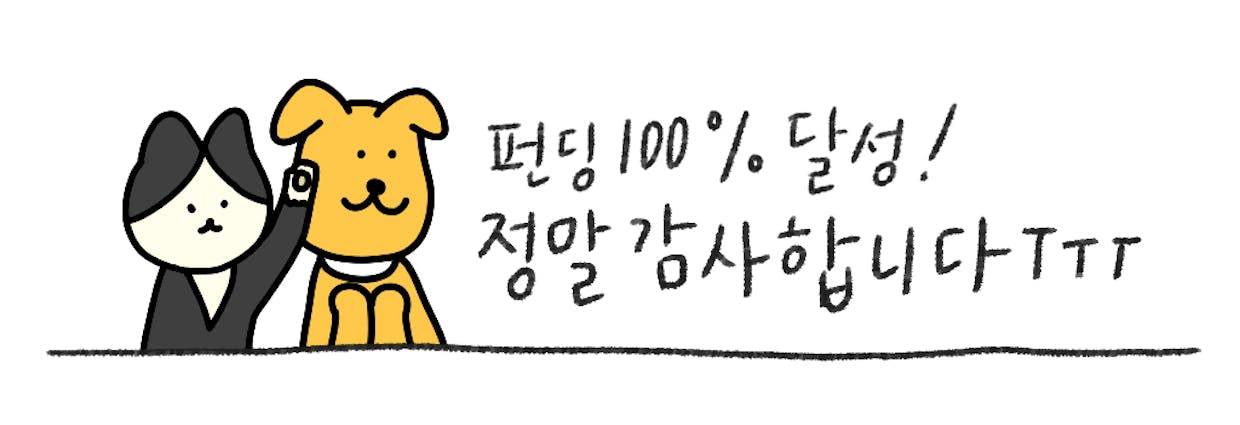 펀딩 100% 달성!
정말 감사합니다ㅜㅜㅜ